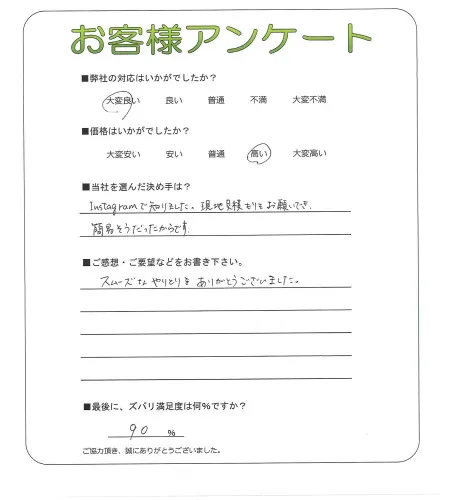 お客様アンケート
■弊社の対応はいかがでしたか？
大変良い 良い 普通 不満 大変不満
■価格はいかがでしたか？
大変安い 安い 普通 高い 大変高い
■当社を選んだ決め手は？
Instagramで知りました。現地見積もりもお願いでき、
簡易そうだったからです。
■ご感想・ご要望などをお書き下さい。
スムーズなやりとりをありがとうございました。
■最後に、ズバリ満足度は何%ですか？
90 %
ご協力頂き、誠にありがとうございました。